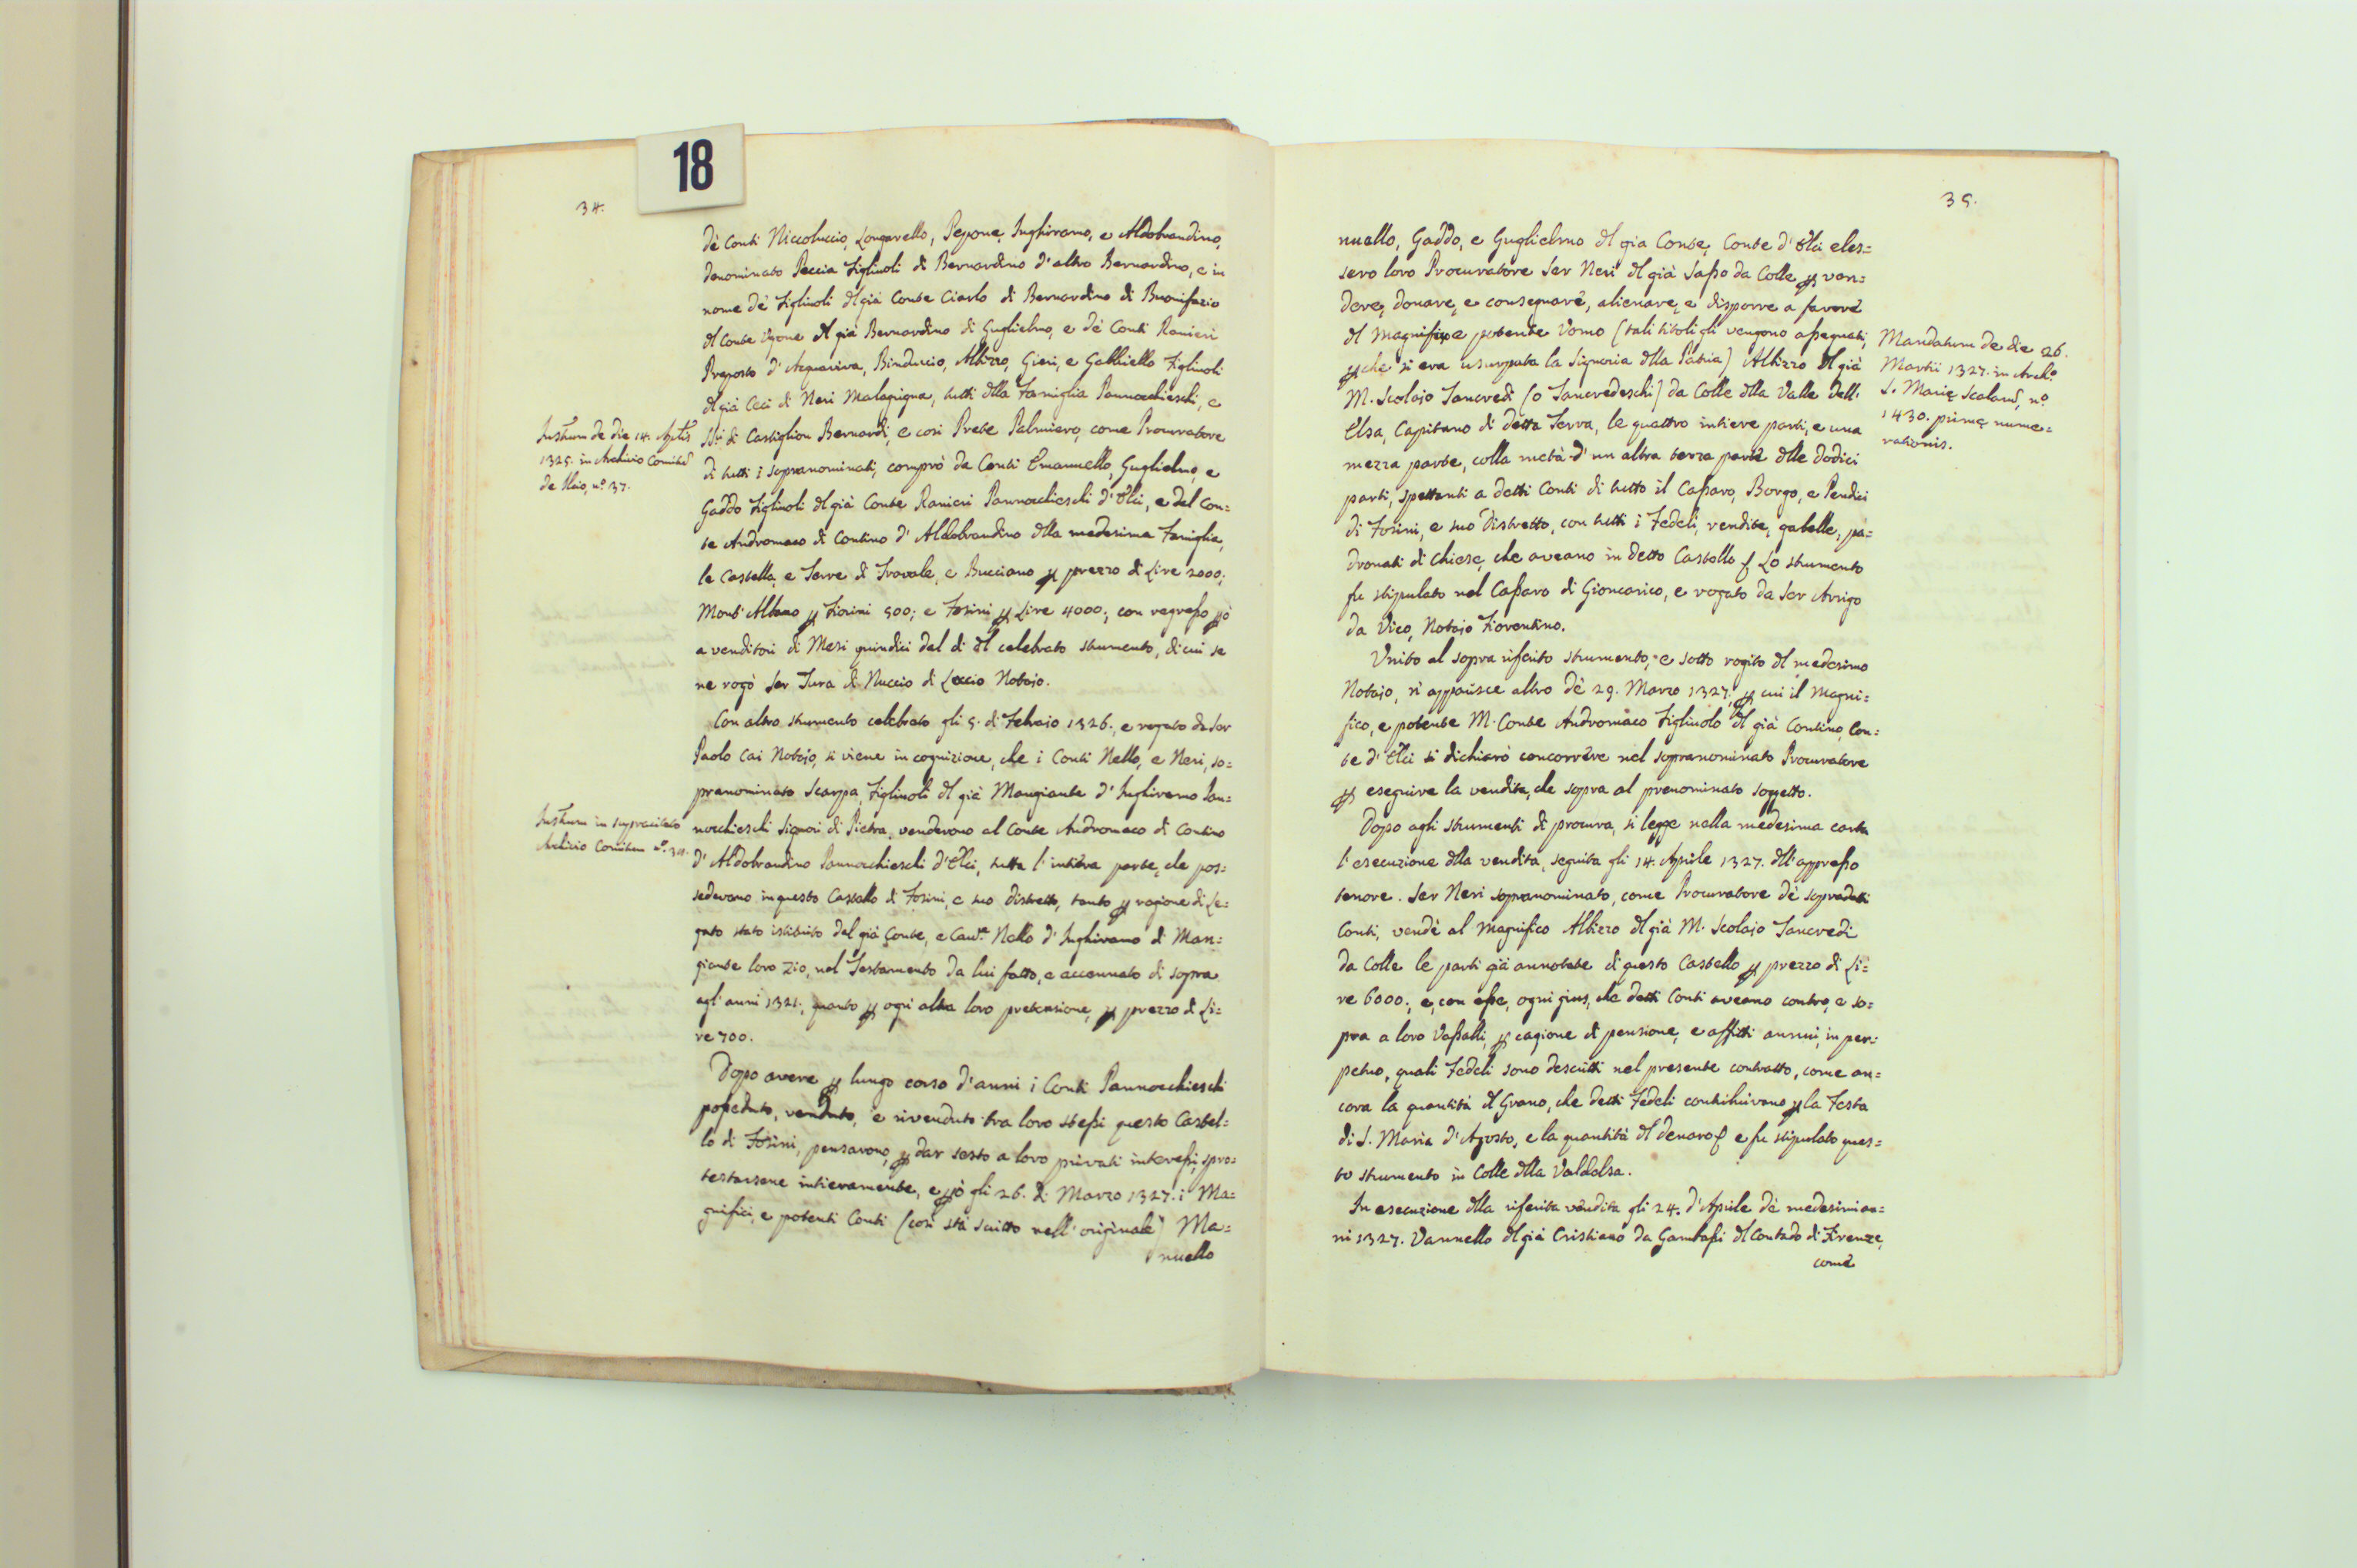 18
34.
dè Conti Niccoluccio, Longarello, Pepone, Inghiramo, e Aldobrandino,
denominato Peccia Figliuoli di Bernardino d'altro Bernardino, e in
nome dè Figliuoli dl già Conte Ciarlo di Bernardino di Buonifazio
dl Conte Ugone dl già Bernardino di Guglielmo, e dè Conti Ranieri
Preposto d'Acquaviva, Binduccio, Albizzo, Gieri, e Gabbiello Figliuoli
dl già Ceci di Neri Malapigna, tutti dlla Famiglia Pannocchieschi, e
di Castiglion Bernardi, e così Prete Palmiero, come Procuratore
di tutti i sopranominati, comprò da Conti Emanuello, Guglielmo, e
Gaddo Figliuoli dl già Conte Ranieri Pannocchieschi d'Elci, e del Con=
te Andromaco di Contino d'Aldobrandino dlla medesima Famiglia,
le Castella, e Terre di Travale, e Bucciano p prezzo di Lire 2000;
Mont'Albano p Fiorini 500; e Fosini p Lire 4000; con regreßo pò
a venditori di Mesi quindici dal dì dl celebrato strumento, di cui se
ne rogò Ser Tura di Nuccio di Loccio Notajo.
Con altro strumento celebrato gli 5. di Febraio 1326., e rogato da Ser
Paolo Cai Notajo, si viene in cognizione, che i Conti Nello, e Neri, so=
pranominato Scarpa, Figliuoli dl già Mangiante d'Inghiramo Pan=
nocchieschi Signori di Pietra, venderono al Conte Andromaco di Contino
d'Aldobrandino Pannocchieschi d'Elci, tutta l'intiera parte, che pos=
sedevano in questo Castello di Fosini, e suo distretto, tanto p ragione di Le=
gato stato istituito dal già Conte, e Nello d'Inghiramo di Man=
giante loro Zio, nel Testamento da lui fatto, e accennato di sopra
agl'anni 1321., quanto p ogni altra loro pretensione, p prezzo di Li=
re 700.
Dopo avere p lungo corso d'anni i Conti Pannocchieschi
poßeduto, venduto, e rivenduto tra loro steßi questo Castel=
lo di Fosini, pensarono, p dar sesto a loro privati intereßi, spro=
testarsene intieramente, e pò gli 26. di Marzo 1327. i Ma=
gnifici, e potenti Conti (così stà scritto nell'originale) Ma=
nuello
de die 14. Aplis
1325. in Archivio Comitũ
de Ilcio, nº. 37.
in supracitato
Archivio Comitum nº.
35.
nuello, Gaddo, e Guglielmo dl già Conte, Conte d'Elci eles=
sero loro Procuratore Ser Neri dl già Saßo da Colle p ven=
dere, donare, e consegnare, alienare, e disporre a favore
dl Magnifico e potente Uomo (tali titoli gli vengono aßegnati,
pche si era usurpata la Signoria dlla Patria) Albizzo dl già
M. Scolajo Tancredi (o Tancredeschi) da Colle dlla Valle dell'
Elsa, Capitano di detta Terra, le quattro intiere parti, e una
mezza parte, colla metà d'un altra terza parte dlle dodici
parti, spettanti a detti Conti di tutto il Caßaro, Borgo, e Pendici
di Fosini, e suo distretto, con tutti i Fedeli, rendite, gabelle, pa=
dronati di Chiese, che aveano in detto Castello Lo strumento
fu stipulato nel Caßaro di Gioncarico, e rogato da Ser Arrigo
da Vico, Notajo Fiorentino.
Unito al sopra riferito strumento, e sotto rogito dl medesimo
Notajo, si apparisce altro dè 29. Marzo 1327., p cui il Magni=
fico, e potente M. Conte Andromaco Figliuolo dl già Contino, Con=
te d'Elci si dichiarò concorrere nel sopranominato Procuratore
p eseguire la vendita, che sopra al prenominato soggetto.
Dopo agli strumenti di procura, si legge nella medesima carta
l'esecuzione dlla vendita, seguita gli 14. Aprile 1327. dll'appreßo
tenore. Ser Neri sopranominato, come Procuratore dè sopradetti
Conti, vendè al Magnifico Albizzo dl già M. Scolajo Tancredi
da Colle le parti già annotate di questo Castello p prezzo di Li=
re 6000., e, con eße, ogni gius, che detti Conti aveano contro, e so=
pra a loro Vaßalli, p cagione di pensione, e affitti annui, in per=
petuo, quali Fedeli sono descritti nel presente contratto, come an=
cora la quantità dl Grano, che detti Fedeli contribuivano p la Festa
di S. Maria d'Agosto, e la quantità dl denaro e fu stipulato ques=
to strumento in Colle dlla Valdelsa.
In esecuzione dlla riferita vendita gli 24. d'Aprile dè medesimi an=
ni 1327. Vannello dl già Cristiano da Gambaßi dl Contado di Firenze,
come
Mandatum de die 26.
Martii 1327. in Archº
S. Marię Scalarũ, nº.
1430. primę nume=
rationis.